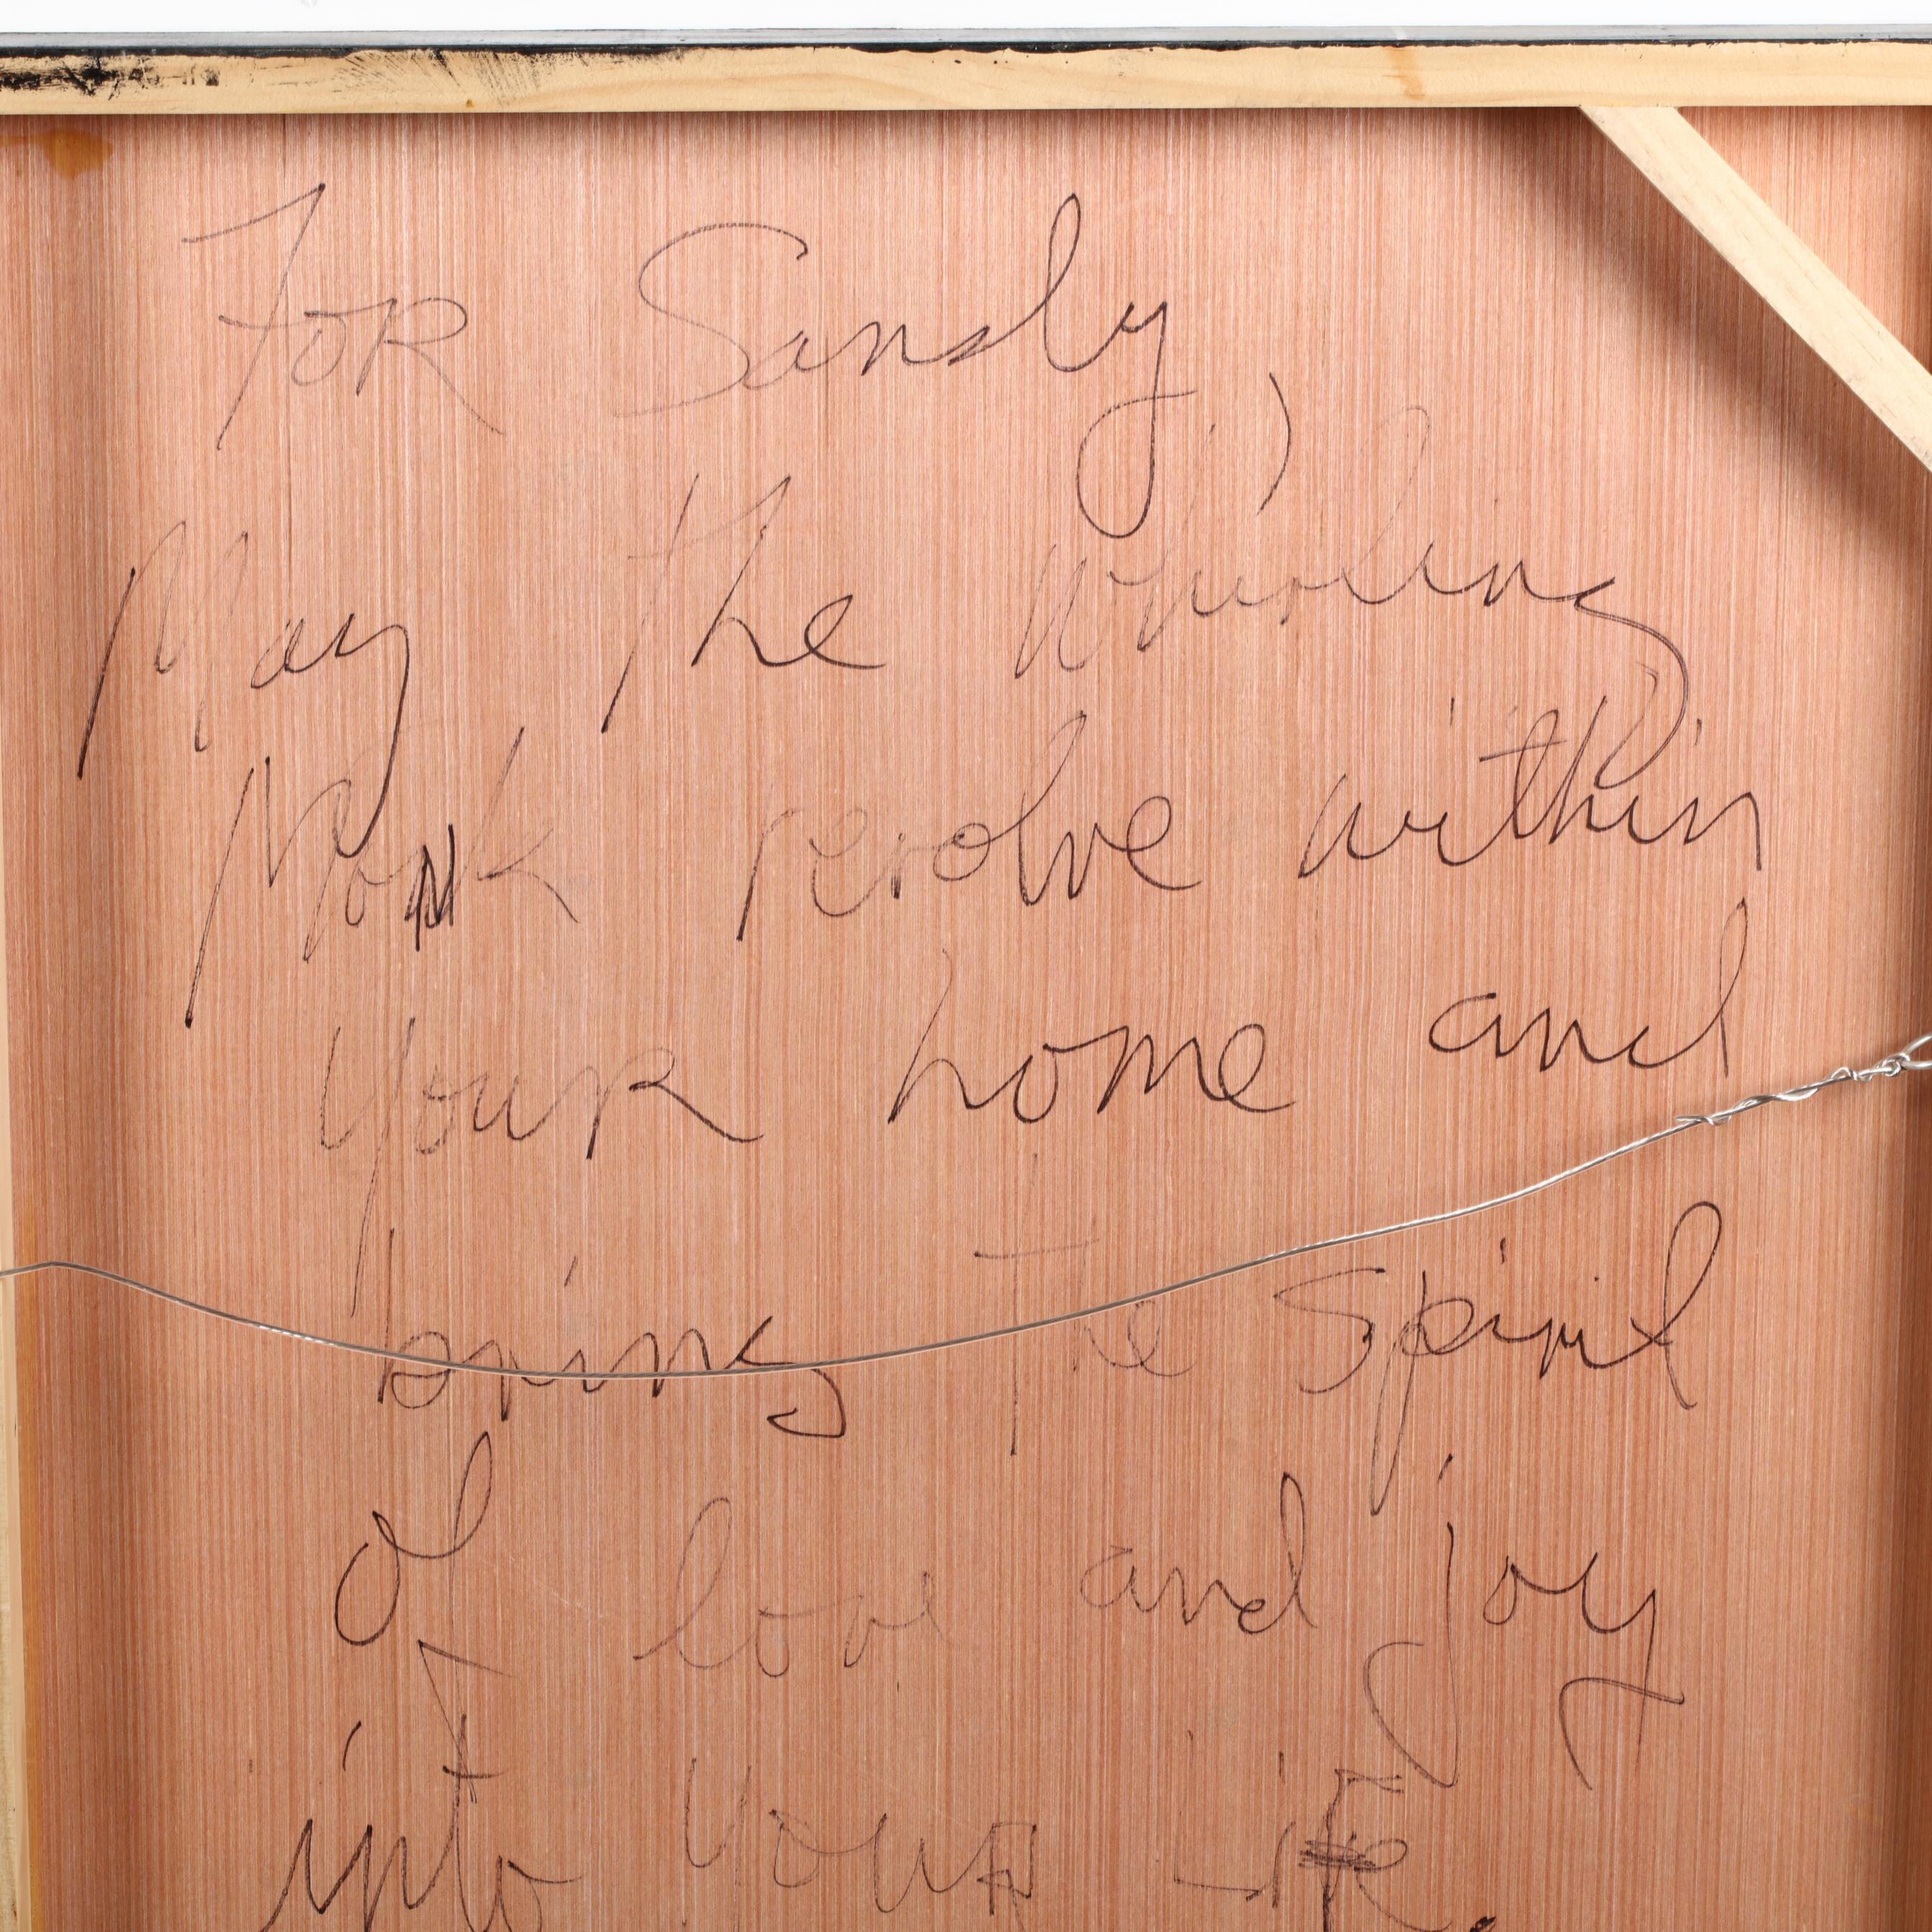 For Sandy,
May the whirling
Monk revolve within
your home and
bring the spirit
of love and joy
into your life.